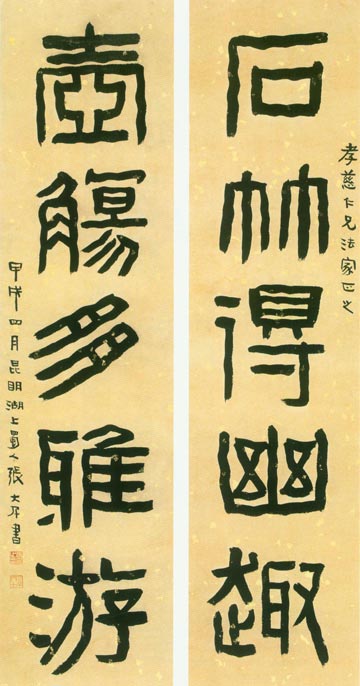 孝慈仁兄法家正之
石林得幽趣
壺觴多雅游
甲戌四月昆明湖上蜀人張大千書